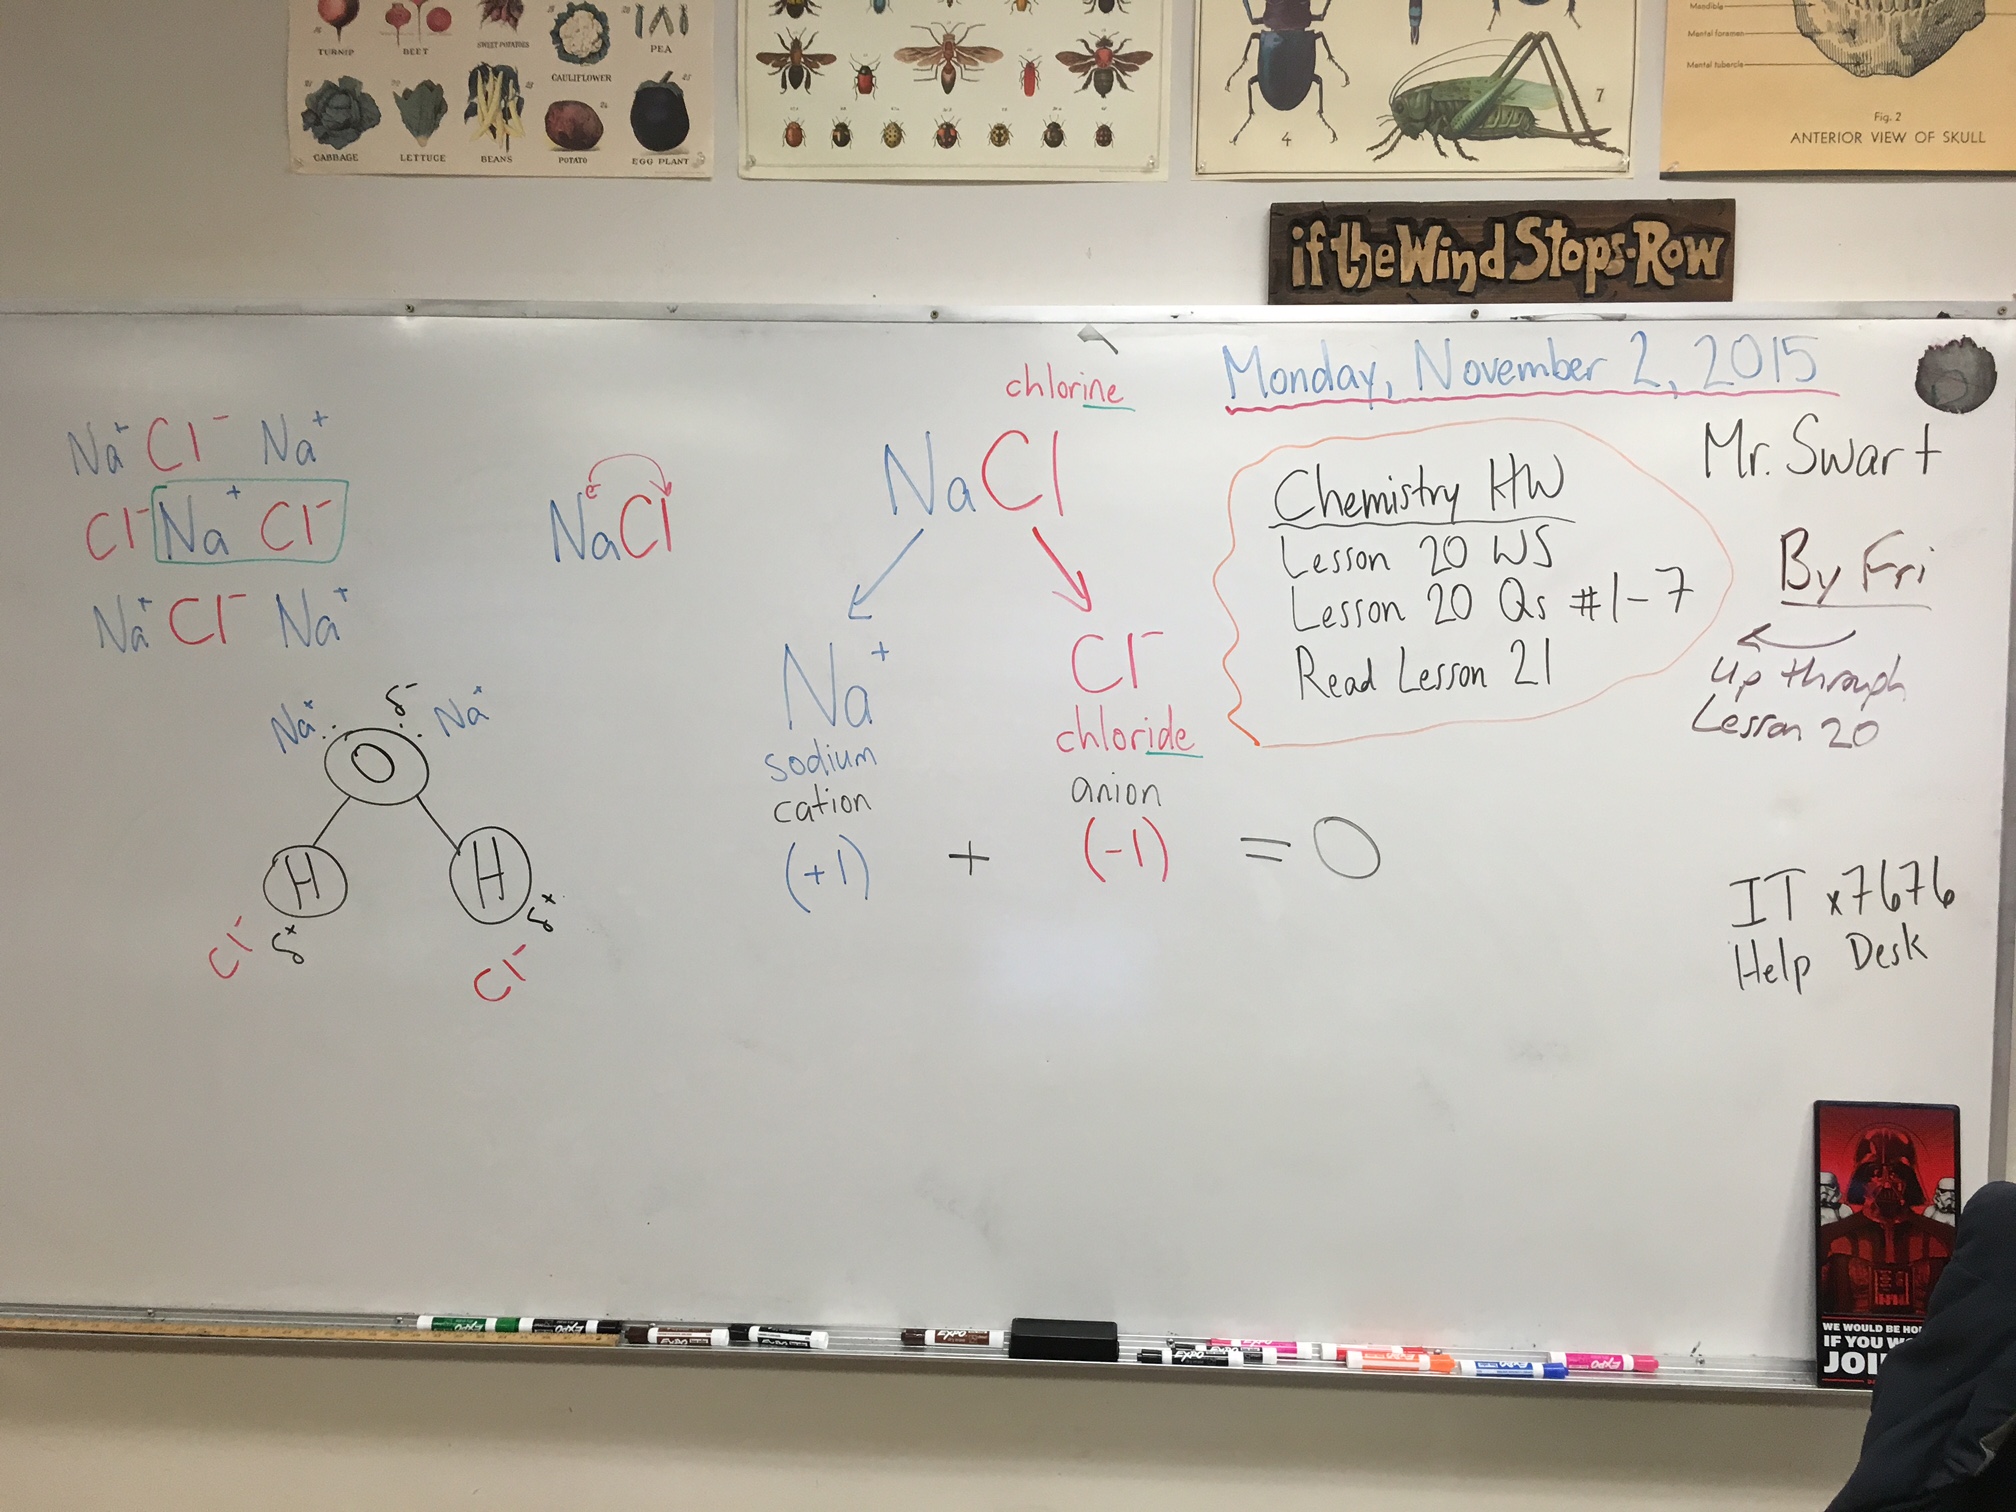 TURNIP
BEET
SWEET POTATOES
CAULIFLOWER
PEA
CABBAGE
LETTUCE
BEANS
POTATO
EGG PLANT
4
7
Mandible
Mental foramen
Mental tubercle
Fig. 2
ANTERIOR VIEW OF SKULL
if the Wind Stops-Row
Monday, November 2, 2015
Mr. Swart
Chemistry HW
Lesson 20 WS
Lesson 20 Qs #1-7
Read Lesson 21
By Fri
Up through
Lesson 20
IT x7676
Help Desk
Na⁺ Cl⁻ Na⁺
Cl⁻ Na⁺ Cl⁻
Na⁺ Cl⁻ Na⁺
e⁻
NaCl
chlorine
NaCl
Na⁺ Cl⁻
sodium chloride
cation anion
(+1) + (-1) = 0
δ⁻
Na⁺ Na⁺
O
H H
δ⁺ δ⁺
Cl⁻ Cl⁻
EXPO
EXPO
EXPO
EXPO
EXPO
EXPO
EXPO
WE WOULD BE HO
IF YOU W
JOI